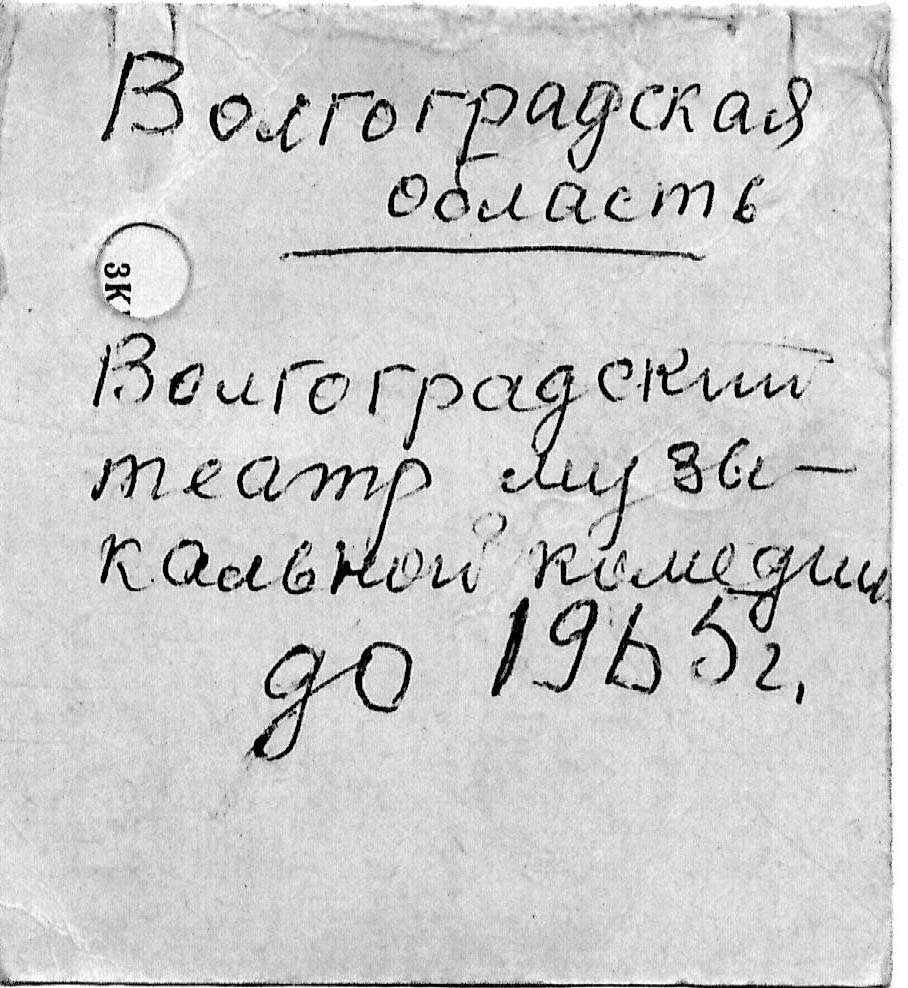 Волгоградская
область
ЗК
Волгоградский
театр музы-
кальной комедии
до 1965г.